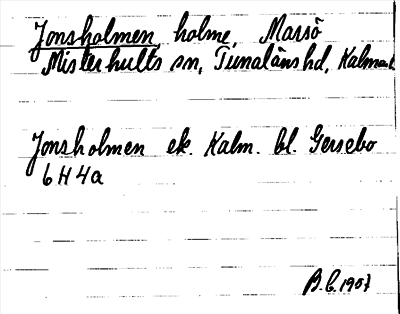 Jonsholmen, holme, Marsö
Misterhults sn, Tunaläns hd, Kalmar l
Jonsholmen ek. Kalm. bl. Gersebo
6H4a
B.C. 1957